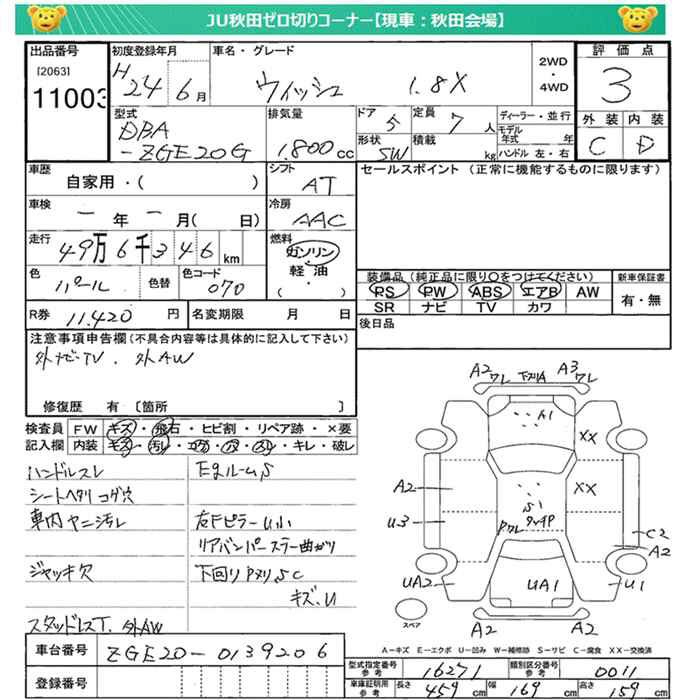 JU秋田ゼロ切りコーナー【現車：秋田会場】
出品番号
[2063]
11003
初度登録年月
H24 6月
車名・グレード
ウィッシュ 1.8X
2WD
・
4WD
評価点
3
外装 内装
C D
型式
DBA
-ZGE20G
排気量
1.800cc
ドア
5
定員
7人
形状
SW
積載
kg
ディーラー・並行
モデル
年式 年
ハンドル 左・右
車歴
自家用・( )
シフト
AT
セールスポイント (正常に機能するものに限ります)
車検
ー年ー月( 日)
冷房
AAC
走行
49万6千346km
燃料
ガソリン・
軽油・
( )
色
パール
色替
色コード
070
装備品(純正品に限り○をつけてください)
PS PW ABS エアB AW
SR ナビ TV カワ
新車保証書
有・無
R券 11.420円
名変期限 月 日
後日品
注意事項申告欄(不具合内容等は具体的に記入して下さい)
外ナビTV. 外AW
修復歴 有 〔箇所 〕
検査員
記入欄
FW キズ・飛石・ヒビ割・リペア跡・×要
内装 キズ・汚レ・コゲ・穴・スレ・キレ・破レ
ハンドルスレ
シートヘタリ コゲ穴
車内ヤニ汚レ
ジャッキ欠
スタッドレスT. 外AW
EgルームS
右Fピラー U小
リアバンパーステー曲がり
下回り Pヌリ S C
キズ、U
A2 ワレ 下ズリA A3 ワレ
A1
XX
A2
XX
U3
S1
Pワレ
C2
A2
UA2
UA1
U1
A2 A2
スペア
A－キズ E－エクボ U－凹み W－補修跡 S－サビ C－腐食 XX－交換済
車台番号
ZGE20-0139206
登録番号
型式指定番号
参考
16271
類別区分番号
参考
0011
車庫証明用
参考
長さ 459cm
幅 169cm
高さ 159cm